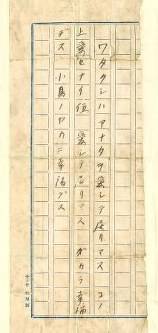 ワタクシハアナタヲ愛シテ居リマス コノ
上愛セナイ位 愛シテヲリマス ダカラ幸福
デス 小鳥ノヤウニ幸福デス